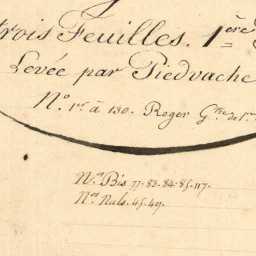 trois Feuilles. 1ère
Levée par Piedvache
N.° 1er à 130. Roger Gtre de 1re
Nos Bis 77. 82. 84. 85. 117.
Nos Nuls. 45. 49.